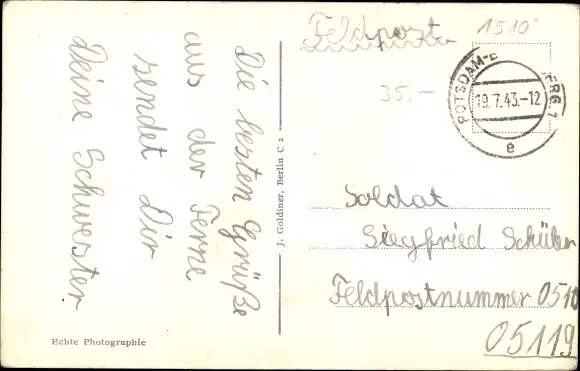 Feldpost
1510
35,-
POTSDAM-B
19.7.43.-12
e
Die besten Grüße
aus der Ferne
sendet Dir
Deine Schwester
J. Goldiner, Berlin C 2
Soldat
Siegfried
Feldpostnummer
05119
Echte Photographie